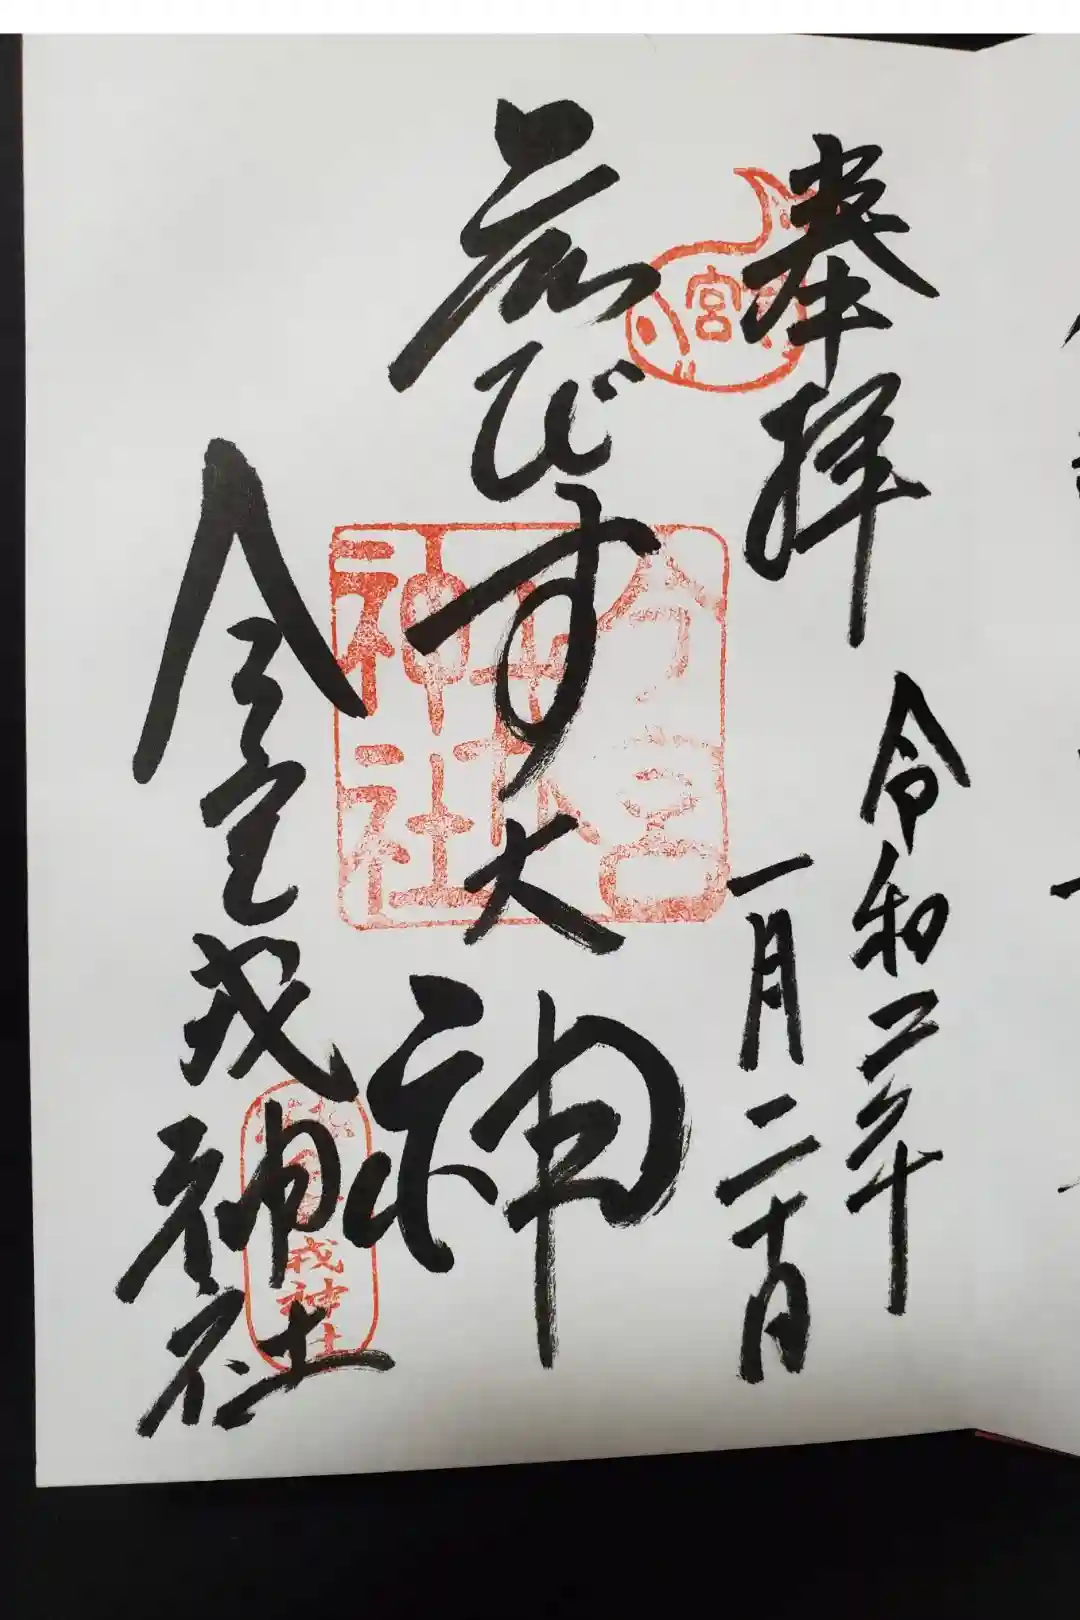 奉拝
令和二年
一月二十日
荒びす大神
今宮戎神社
宮
今宮
神社
戎神社